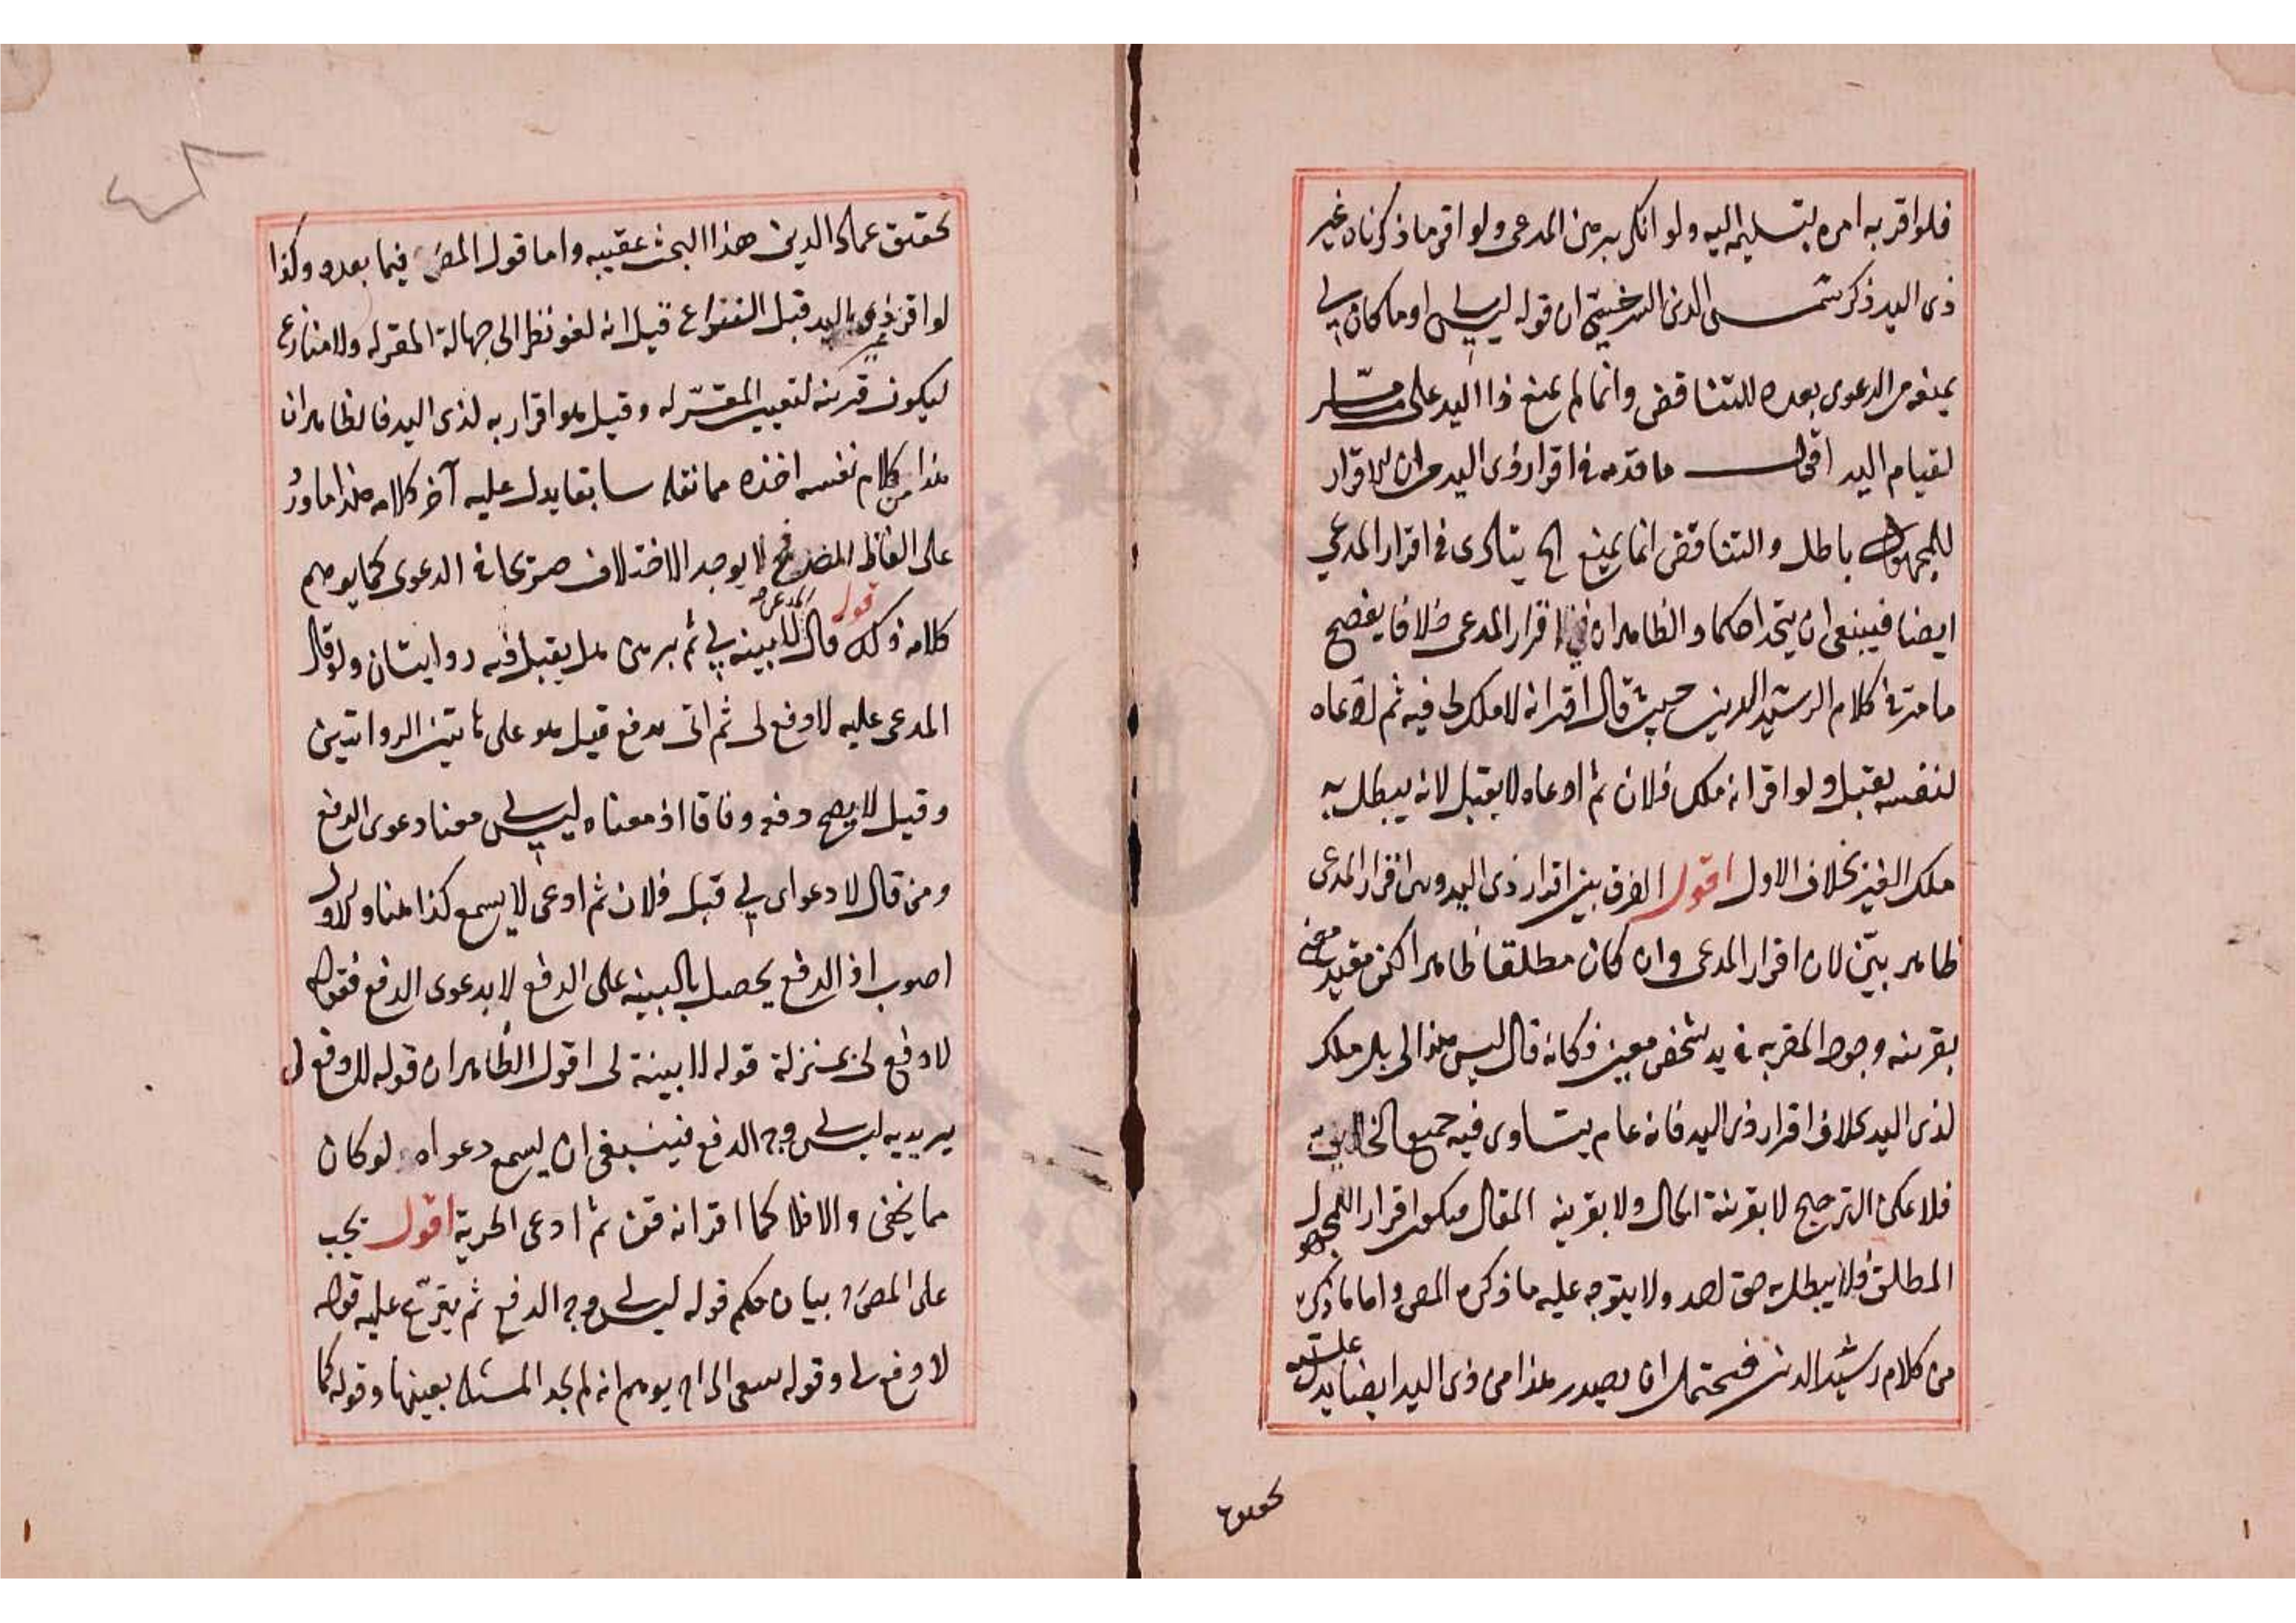 فلو اقر به امره بتسليمه اليه ولو انكر برهن المدعى ولو اقر ما ذكرناه غير
ذى اليد ذكر شمس الدين السرخسي ان قوله ليس لى او ما كان لى
يمنعه من الدعوى بعده للتناقض وانما لم يمنع ذا اليد على ما مر
لقيام اليد اقول ما قدمه فى اقرار ذى اليد من ان الاقرار
للمجهول باطل والتناقض انما يمنع الخ يتأدى فى اقرار المدعي
ايضا فينبغى ان يتحدا حكما والظاهر ان فى اقرار المدعى خلافا يفصح
ما مر فى كلام الرشيد الدين حيث قال اقر انه لا ملك لى فيه ثم ادعاه
لنفسه يقبل ولو اقر انه ملك فلان ثم ادعاه لا يقبل لانه يبطل به
ملك الغير بخلاف الاول اقول الفرق بين اقرار ذى اليد وبين اقرار المدعى
ظاهر بيّن لان اقرار المدعى وان كان مطلقا ظاهرا لكن مقيد معنى
بقرينه وجود المقر به فى يد شخص معين فكانه قال ليس هذا لى بل ملك
لذى اليد بخلاف اقرار ذى اليد فانه عام يتساوى فيه جميع الخلايق
فلا يمكن الترجيح لا بقرينة الحال ولا بقرينه المقال فيكون اقرار للمجهول
المطلق فلا يبطل به حق احد ولا يتوجه عليه ما ذكره المص واما ما ذكره
من كلام رشيد الدين فيحتمل ان يصدر هذا من ذى اليد ايضا يدل عليه
تحقيق
تحقيق عماد الدين هذا البحث عقيبه واما قول المص فيما بعده وكذا
لو اقر ذى اليد قبل النزاع قيل انه لغو نظرا الى جهالة المقر له ولا منازع
ليكون قرينه لتعيين المقرّ له وقيل هو اقرار به لذى اليد فالظاهر ان
هذا من كلام نفسه اخذه مما نقله سابقا يدل عليه آخر كلامه هذا ما ورد
على الفاظ المص فح لا يوجد الاختلاف صريحا فى الدعوى كما يوهم
كلامه ذلك قوله قال المدعى لا بينه لى ثم برهن هل يقبل فيه روايتان ولو قال
المدعى عليه لا دفع لى ثم اتى بدفع قيل هو على هاتين الروايتين
وقيل لا يصح دفعه وفاقا اذ معناه ليس لى معنا دعوى الدفع
ومن قال لا دعوى لى قبل فلان ثم ادعى لا يسمع كذا هنا والاول
اصوب اذ الدفع يحصل بالبينه على الدفع لا بدعوى الدفع فقوله
لا دفع لى بمنزلة قوله لا بينة لى اقول الظاهر ان قوله لا دفع لى
يريد به ليس لى وجه الدفع فينبغى ان يسمع دعواه لو كان
مما يخفى والا فلا كما اقر انه قن ثم ادعى الحرية اقول يجب
على المص بيان حكم قوله ليس لى وجه الدفع ثم يتفرع عليه قوله
لا دفع لى وقوله الخ يوهم انه لم يجد المسئله بعينها وقوله كما